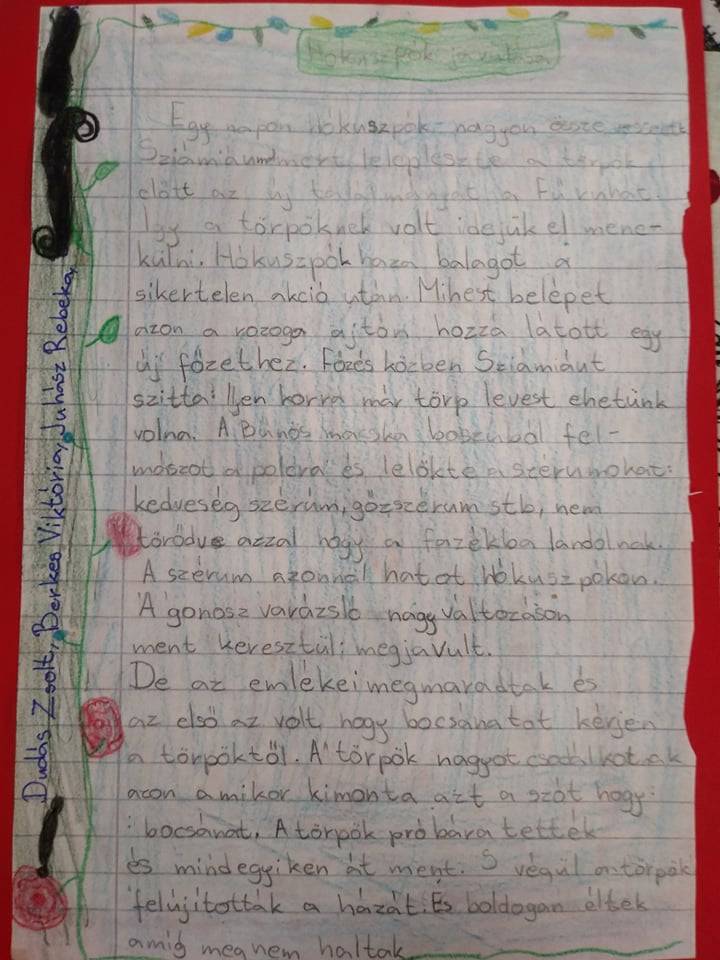 Hókuszpók javulása
Egy napon Hókuszpók nagyon össze veszett
Sziámiaúmert leleplészte a törpök
előtt az új találmányát a Fúrinhat.
Igy a törpöknek volt idejük el mene-
külni. Hókuszpók haza balagot a
sikertelen akció után. Mihest belépet
azon a rozoga ajtón hozzá látott egy
új főzethez. Főzés közben Sziámiáut
szitta: Ijen korra már törp levest ehetünk
volna. A Bűnös macska boszúból fel-
mászot a polcra és lelökte a szérumokat:
kedveség szérum, gőzszérum stb, nem
törödve azzal hogy a fazékba landolnak.
A szérum azonnal hatot Hókuszpókon.
A gonosz varázsló nagy változáson
ment keresztül: megjavult.
De az emlékei megmaradtak és
az első az volt, hogy bocsánatot kérjen
a törpöktől. A törpök nagyot csodálkotak
azon amikor kimonta azt a szót hogy:
: bocsánat. A törpök próbára tették
és mindegyiken át ment. S végül a törpök
felújítottak a házát. És boldogan éltek
amig meg nem haltak
Dudás Zsolt, Berkes Viktória, Juhász Rebeka,